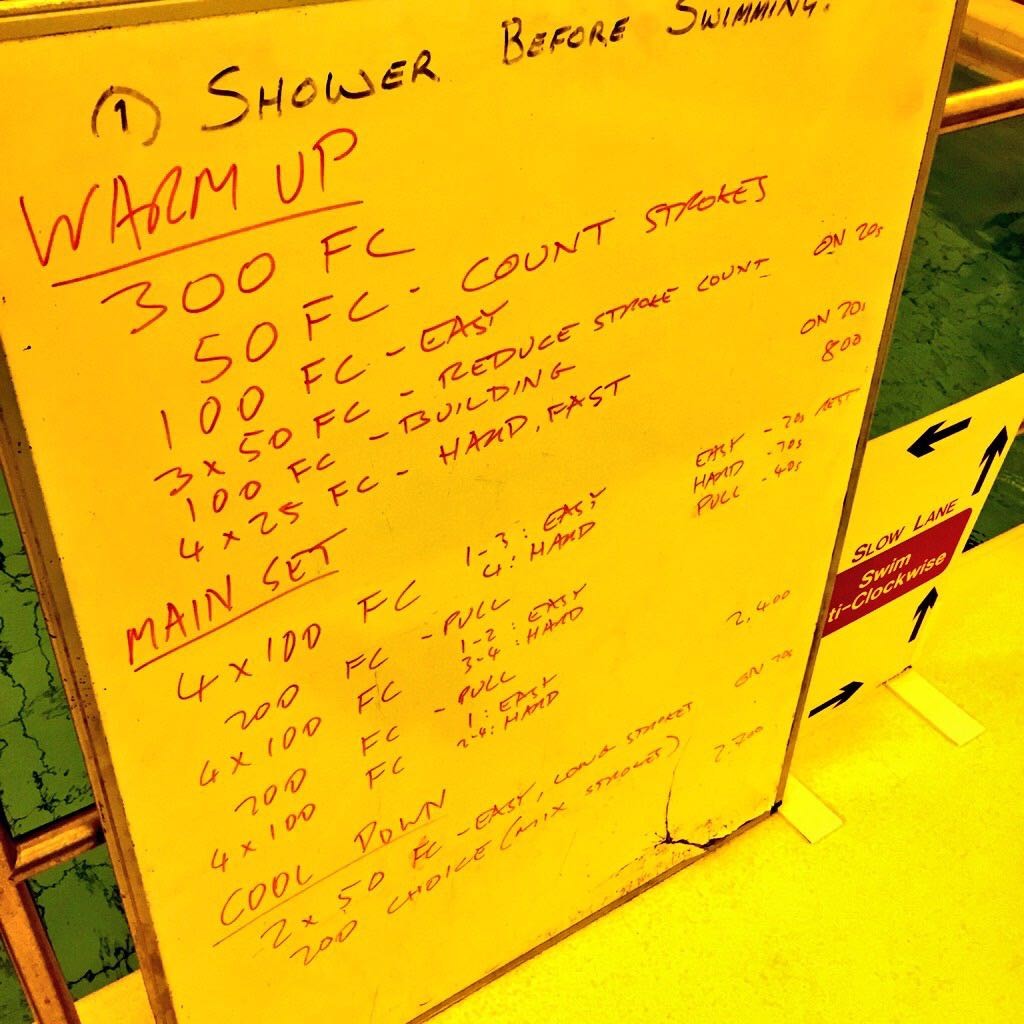 ① SHOWER BEFORE SWIMMING.
WARM UP
300 FC
50 FC - COUNT STROKES
100 FC - EASY
3 x 50 FC - REDUCE STROKE COUNT ON 20s
100 FC - BUILDING
4 x 25 FC - HARD, FAST ON 20s
800
MAIN SET
4 x 100 FC 1-3: EASY EASY - 20s REST
4: HARD HARD - 20s
200 FC - PULL PULL - 40s
4 x 100 FC 1-2: EASY
3-4: HARD
200 FC - PULL
4 x 100 FC 1: EASY
2-4: HARD
2,400
COOL DOWN
2 x 50 FC - EASY, LONG STROKES ON 20s
200 CHOICE (MIX STROKES) 2,700
SLOW LANE
Swim
ti-Clockwise